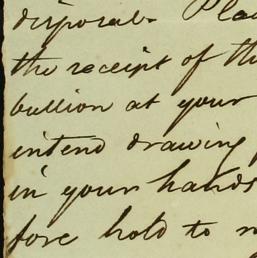 disposal. Pla
the receipt of th
bullion at your
intend drawing
in your hands
fore hold to